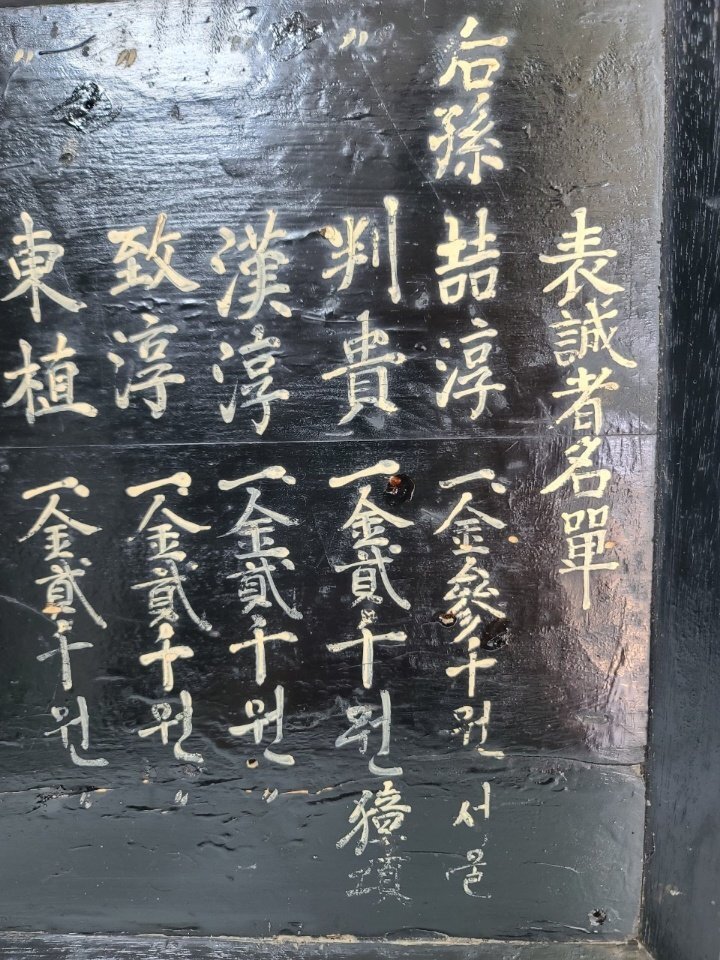 表誠者名單
后孫 喆淳 一金參千원 서울
〃 判貴 一金貳千원 獐項
〃 漢淳 一金貳千원 〃
〃 致淳 一金貳千원 〃
〃 東植 一金貳千원 〃